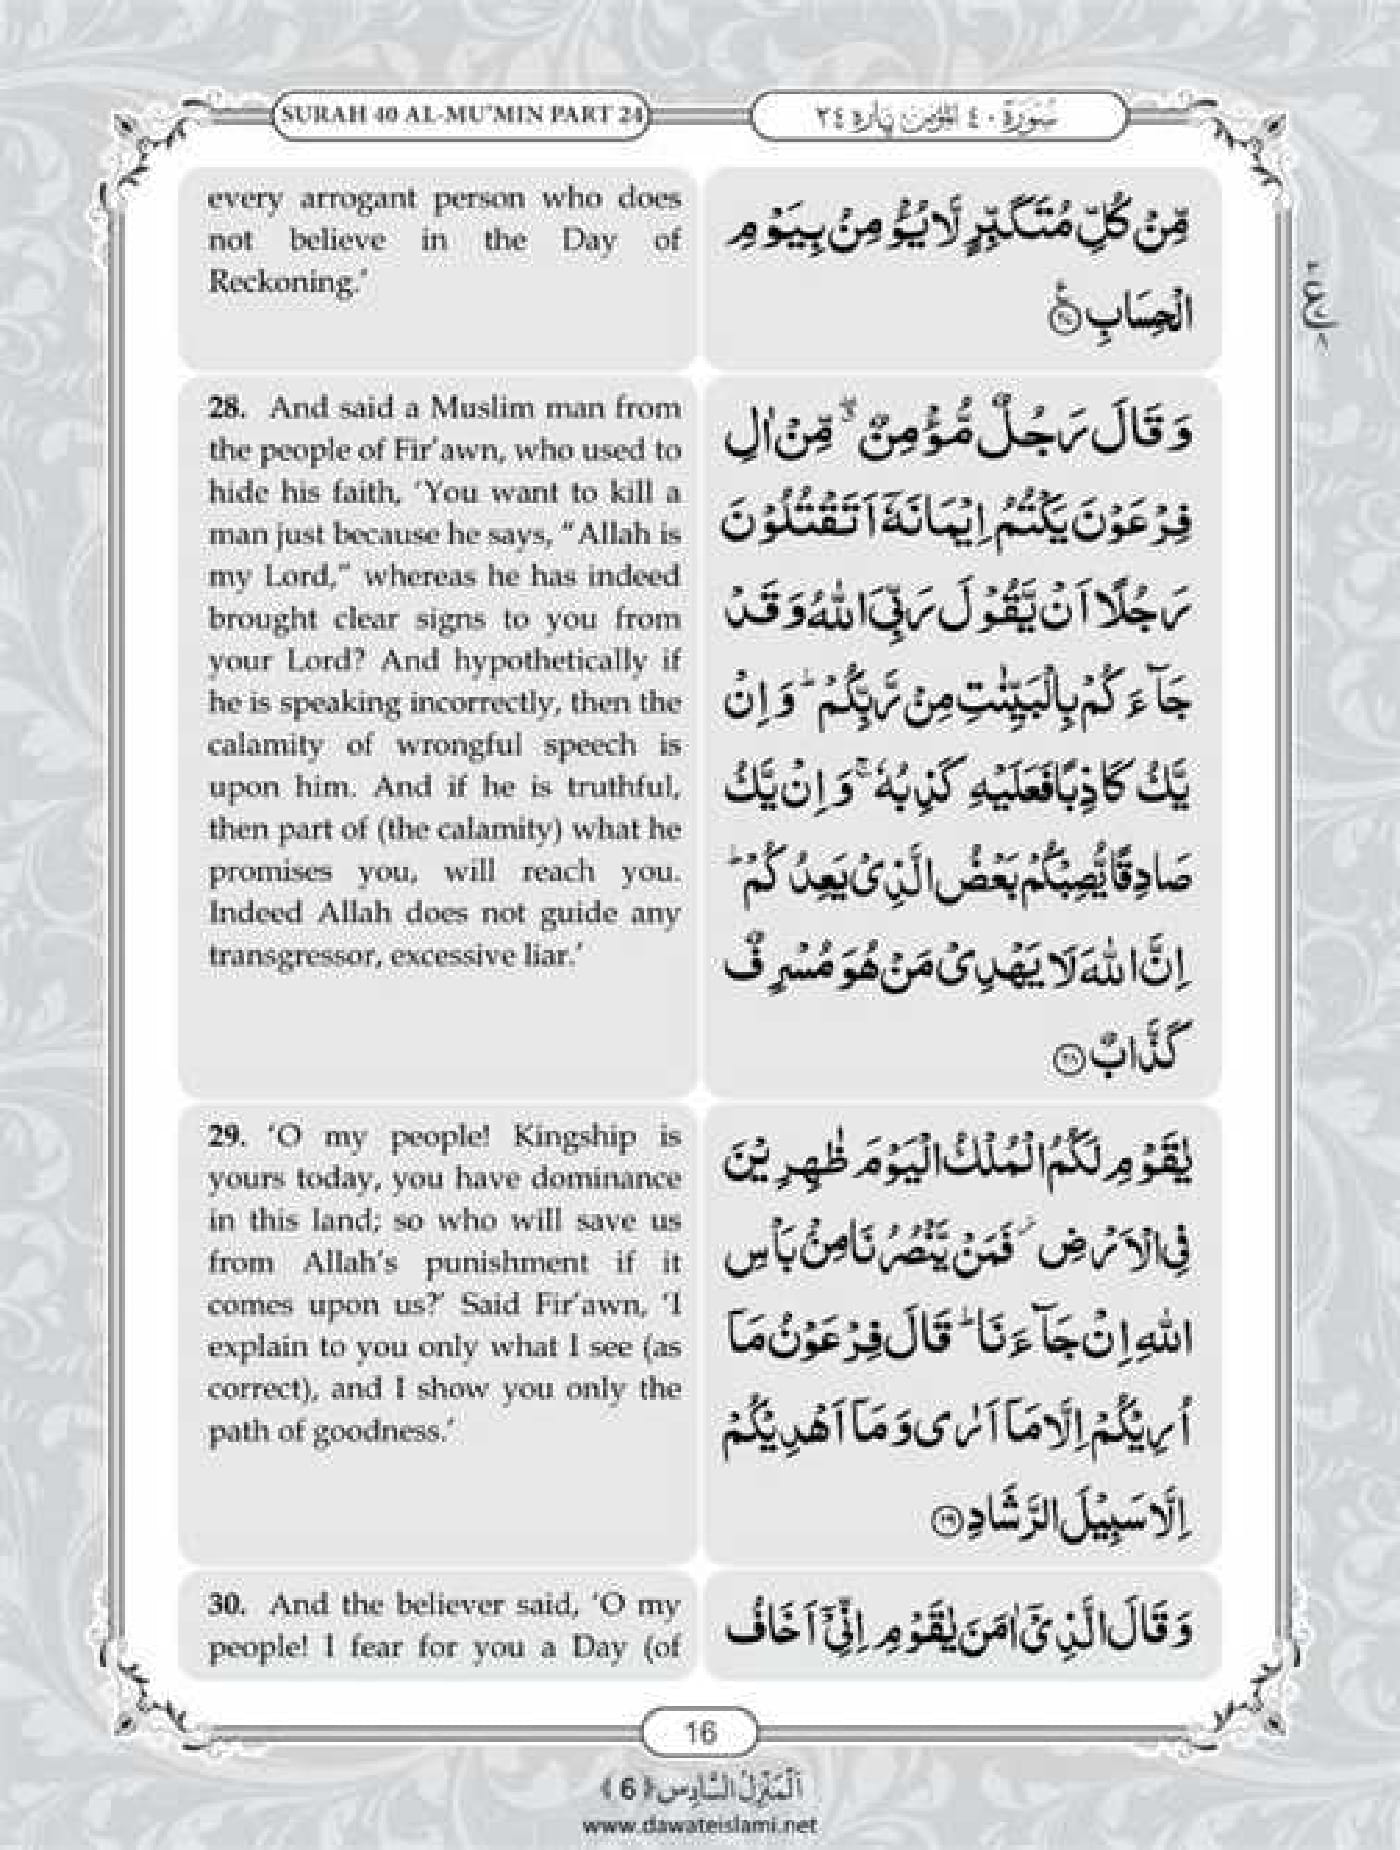 SURAH 40 AL-MU’MIN PART 24
سُوۡرَةُ ٤٠ اَلۡمُؤۡمِن پَارہ ٢٤
every arrogant person who does
not believe in the Day of
Reckoning.’
مِّنۡ كُلِّ مُتَكَبِّرٍ لَّا يُؤۡمِنُ بِيَوۡمِ
الۡحِسَابِ ﴿٢٧﴾
28. And said a Muslim man from
the people of Fir’awn, who used to
hide his faith, ‘You want to kill a
man just because he says, “Allah is
my Lord,” whereas he has indeed
brought clear signs to you from
your Lord? And hypothetically if
he is speaking incorrectly, then the
calamity of wrongful speech is
upon him. And if he is truthful,
then part of (the calamity) what he
promises you, will reach you.
Indeed Allah does not guide any
transgressor, excessive liar.’
وَ قَالَ رَجُلٌ مُّؤۡمِنٌ ۖ مِّنۡ اٰلِ
فِرۡعَوۡنَ يَكۡتُمُ اِيۡمَانَهٗۤ اَتَقۡتُلُوۡنَ
رَجُلًا اَنۡ يَّقُوۡلَ رَبِّیَ اللّٰهُ وَ قَدۡ
جَآءَكُمۡ بِالۡبَيِّنٰتِ مِنۡ رَّبِّكُمۡ ؕ وَ اِنۡ
يَّكُ كَاذِبًا فَعَلَيۡهِ كَذِبُهٗ ۚ وَ اِنۡ يَّكُ
صَادِقًا يُّصِبۡكُمۡ بَعۡضُ الَّذِیۡ يَعِدُكُمۡ ؕ
اِنَّ اللّٰهَ لَا يَهۡدِیۡ مَنۡ هُوَ مُسۡرِفٌ
كَذَّابٌ ﴿٢٨﴾
29. ‘O my people! Kingship is
yours today, you have dominance
in this land; so who will save us
from Allah’s punishment if it
comes upon us?’ Said Fir’awn, ‘I
explain to you only what I see (as
correct), and I show you only the
path of goodness.’
يٰقَوۡمِ لَكُمُ الۡمُلۡكُ الۡيَوۡمَ ظٰهِرِيۡنَ
فِی الۡاَرۡضِ ۫ فَمَنۡ يَّنۡصُرُنَا مِنۡۢ بَاۡسِ
اللّٰهِ اِنۡ جَآءَنَا ؕ قَالَ فِرۡعَوۡنُ مَاۤ
اُرِيۡكُمۡ اِلَّا مَاۤ اَرٰی وَ مَاۤ اَهۡدِيۡكُمۡ
اِلَّا سَبِيۡلَ الرَّشَادِ ﴿٢٩﴾
30. And the believer said, ‘O my
people! I fear for you a Day (of
وَ قَالَ الَّذِیۡۤ اٰمَنَ يٰقَوۡمِ اِنِّیۡۤ اَخَافُ
16
اَلۡمَنۡزِلُ السَّادِس ﴿6﴾
www.dawateislami.net